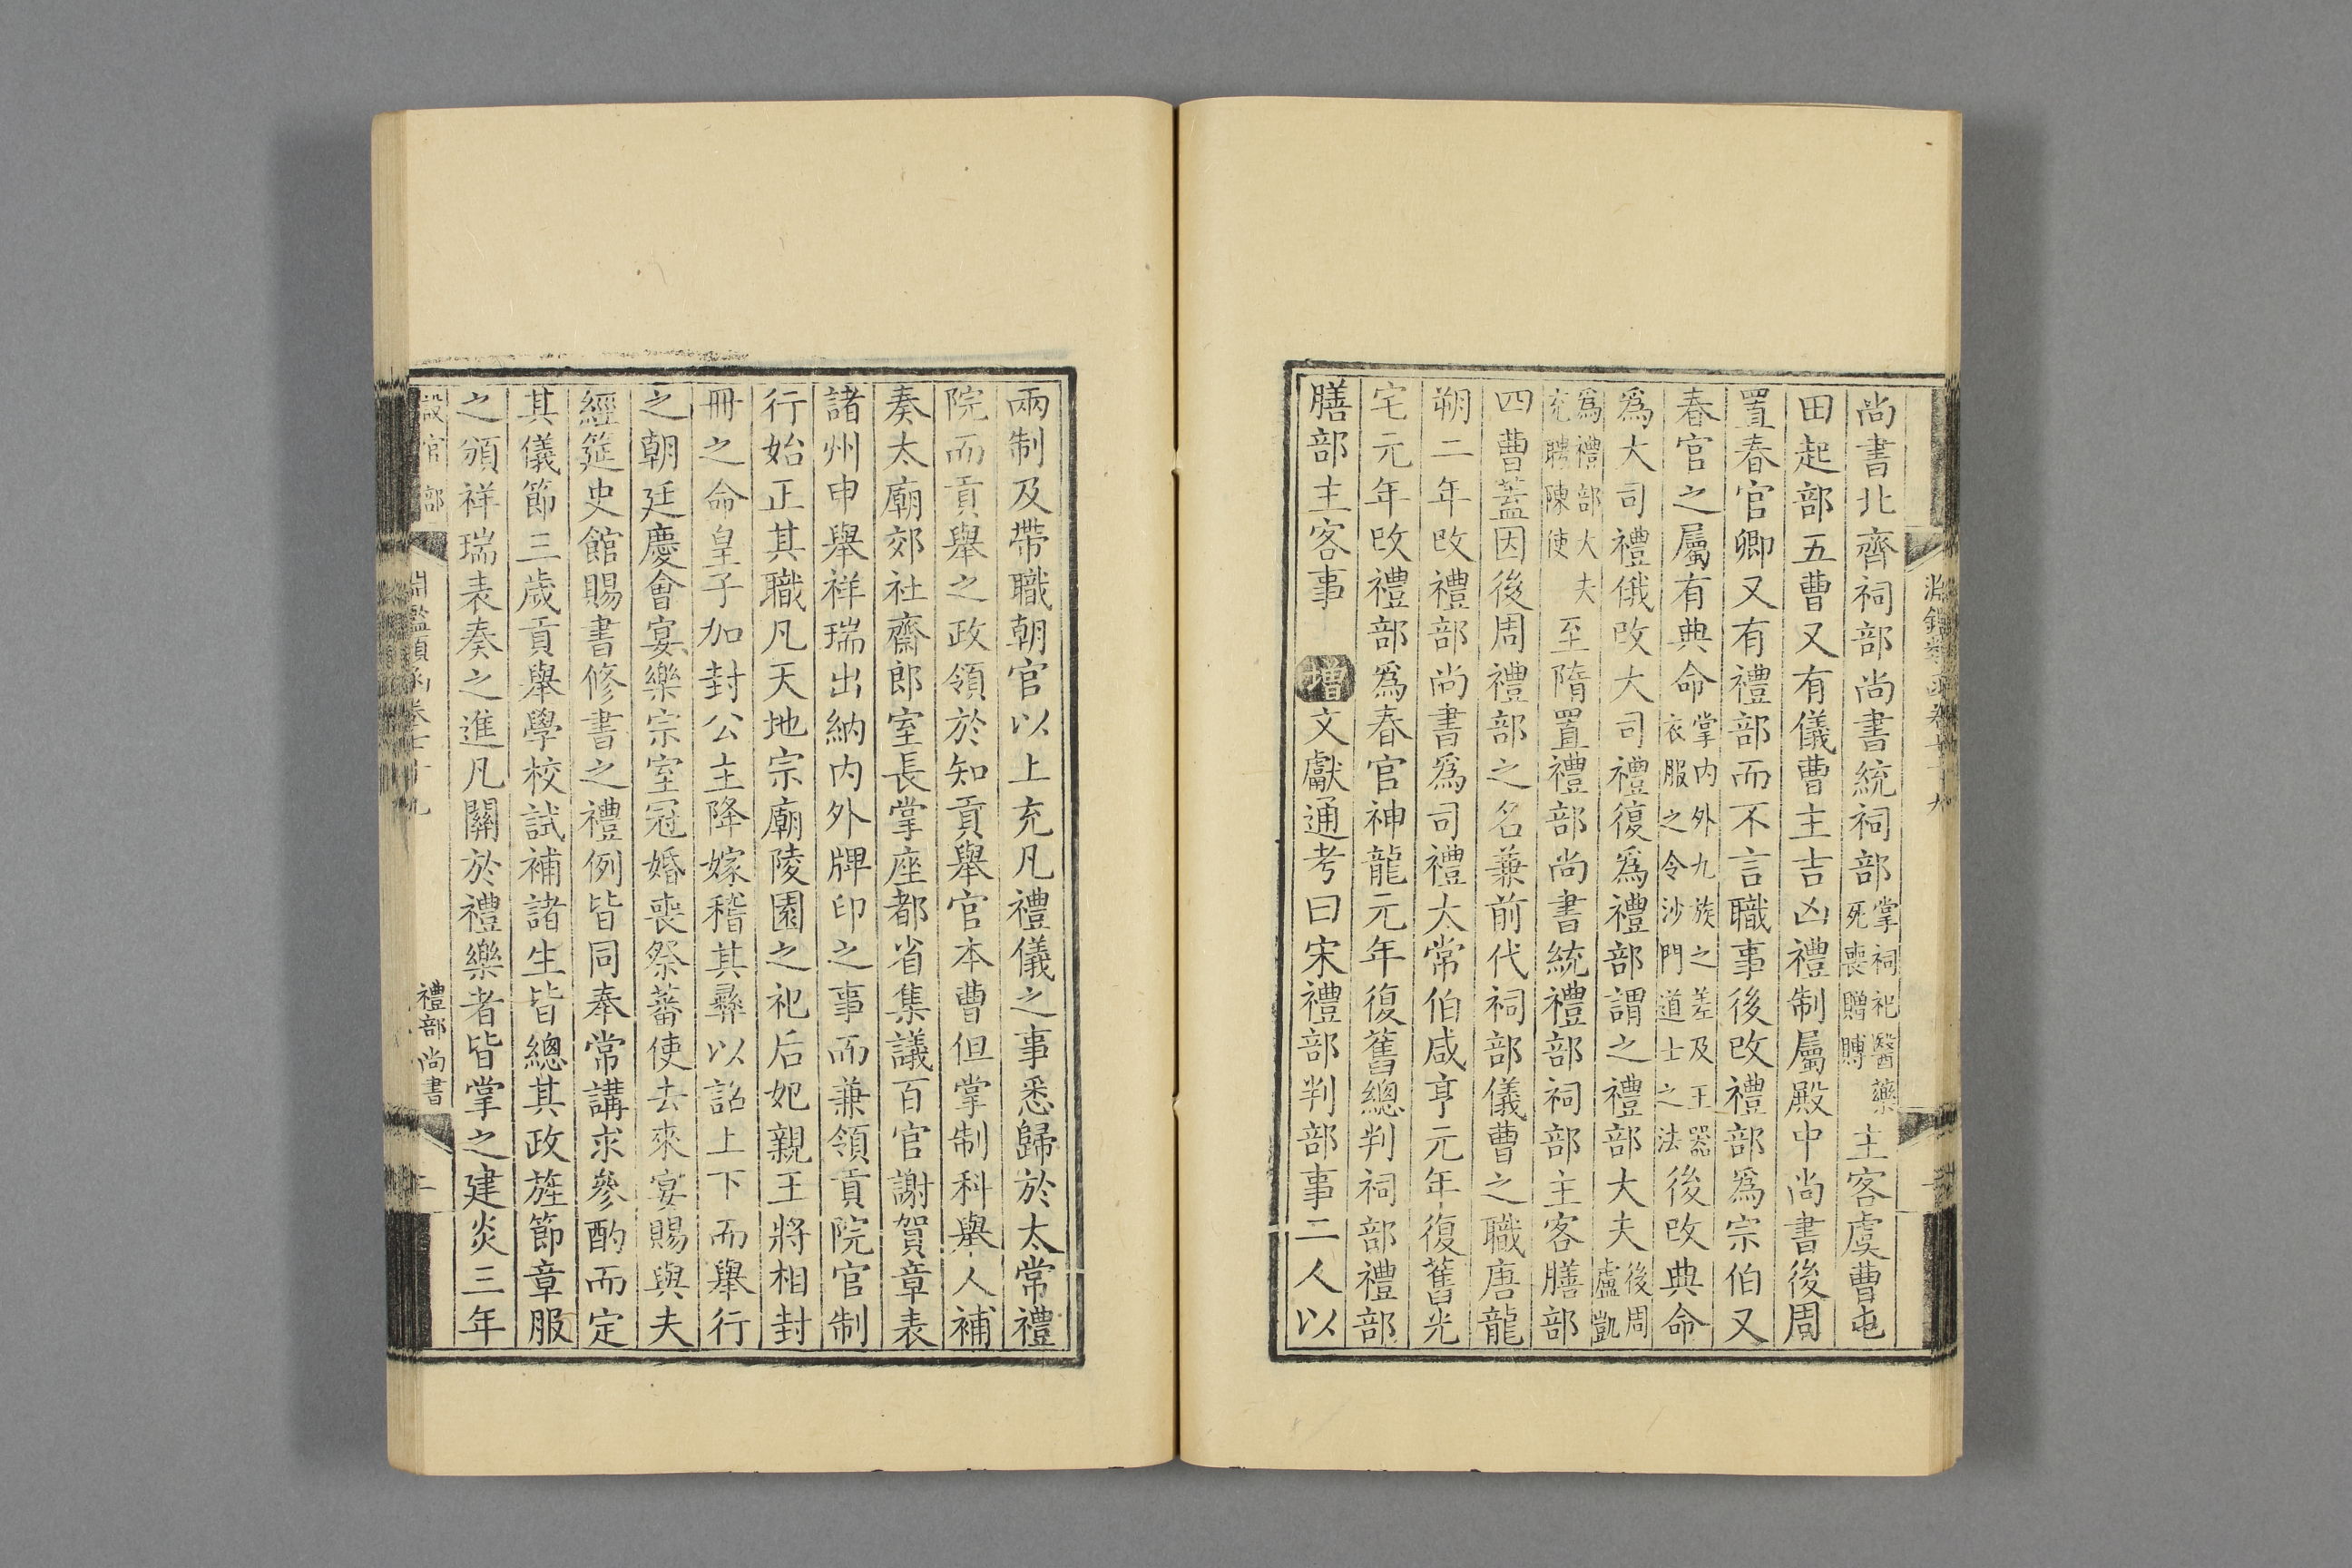 尚書北齊祠部尚書統祠部掌祠祀醫藥死喪贈賻主客虞曹屯
田起部五曹又有儀曹主吉凶禮制屬殿中尚書後周
置春官卿又有禮部而不言職事後改禮部爲宗伯又
春官之屬有典命掌内外九族之差及王器衣服之令沙門道士之法後改典命
爲大司禮俄改大司禮復爲禮部謂之禮部大夫後周盧凱
爲禮部大夫充聘陳使至隋置禮部尚書統禮部祠部主客膳部
四曹蓋因後周禮部之名兼前代祠部儀曹之職唐龍
朔二年改禮部尚書爲司禮太常伯咸亨元年復舊光
宅元年改禮部爲春官神龍元年復舊總判祠部禮部
膳部主客事 增文獻通考曰宋禮部判部事二人以
兩制及帶職朝官以上充凡禮儀之事悉歸於太常禮
院而貢舉之政領於知貢舉官本曹但掌制科舉人補
奏太廟郊社齋郎室長掌座都省集議百官謝賀章表
諸州申舉祥瑞出納内外牌印之事而兼領貢院官制
行始正其職凡天地宗廟陵園之祀后妃親王將相封
冊之命皇子加封公主降嫁稽其彝以詔上下而舉行
之朝廷慶會宴樂宗室冠婚喪祭蕃使去來宴賜與夫
經筵史館賜書修書之禮例皆同奉常講求參酌而定
其儀節三歲貢舉學校試補諸生皆總其政旌節章服
之頒祥瑞表奏之進凡關於禮樂者皆掌之建炎三年
設官部 淵鑑類函卷七十九 禮部尚書 二